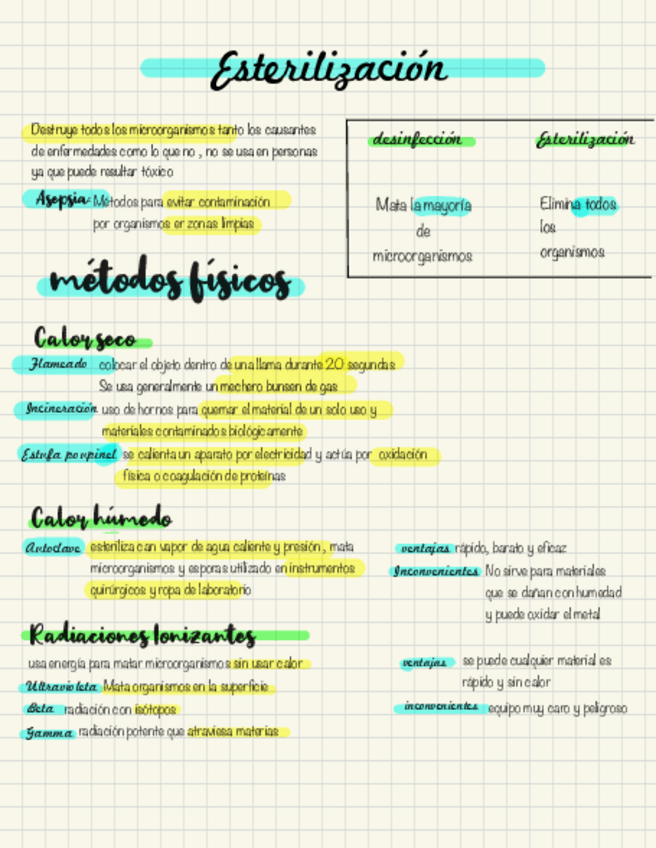 Esterilización
Destruye todos los microorganismos tanto los causantes
de enfermedades como lo que no , no se usa en personas
ya que puede resultar tóxico
Asepsia: Métodos para evitar contaminación
por organismos er zonas limpias
desinfección
Mata la mayoría
de
microorganismos
Esterilización
Elimina todos
los
organismos
métodos físicos
Calor seco
Flameado colocar el objeto dentro de una llama durante 20 segundas
Se usa generalmente un mechero bunsen de gas
Incineración uso de hornos para quemar el material de un solo uso y
materiales contaminados biológicamente
Estufa poupinel se calienta un aparato por electricidad y actúa por oxidación
física o coagulación de proteínas
Calor húmedo
Autoclave esteriliza can vapor de agua caliente y presión, mata
microorganismos y esporas utilizado en instrumentos
quirúrgicos y ropa de laboratorio
ventajas rápido, barato y eficaz
Inconvenientes No sirve para materiales
que se dañan con humedad
y puede oxidar el metal
Radiaciones Ionizantes
usa energía para matar microorganismos sin usar calor
Ultravioleta Mata organismos en la superficie
Beta radiación con isótopos
Gamma radiación potente que atraviesa materias
ventajas se puede cualquier material es
rápido y sin calor
inconvenientes equipo muy caro y peligroso